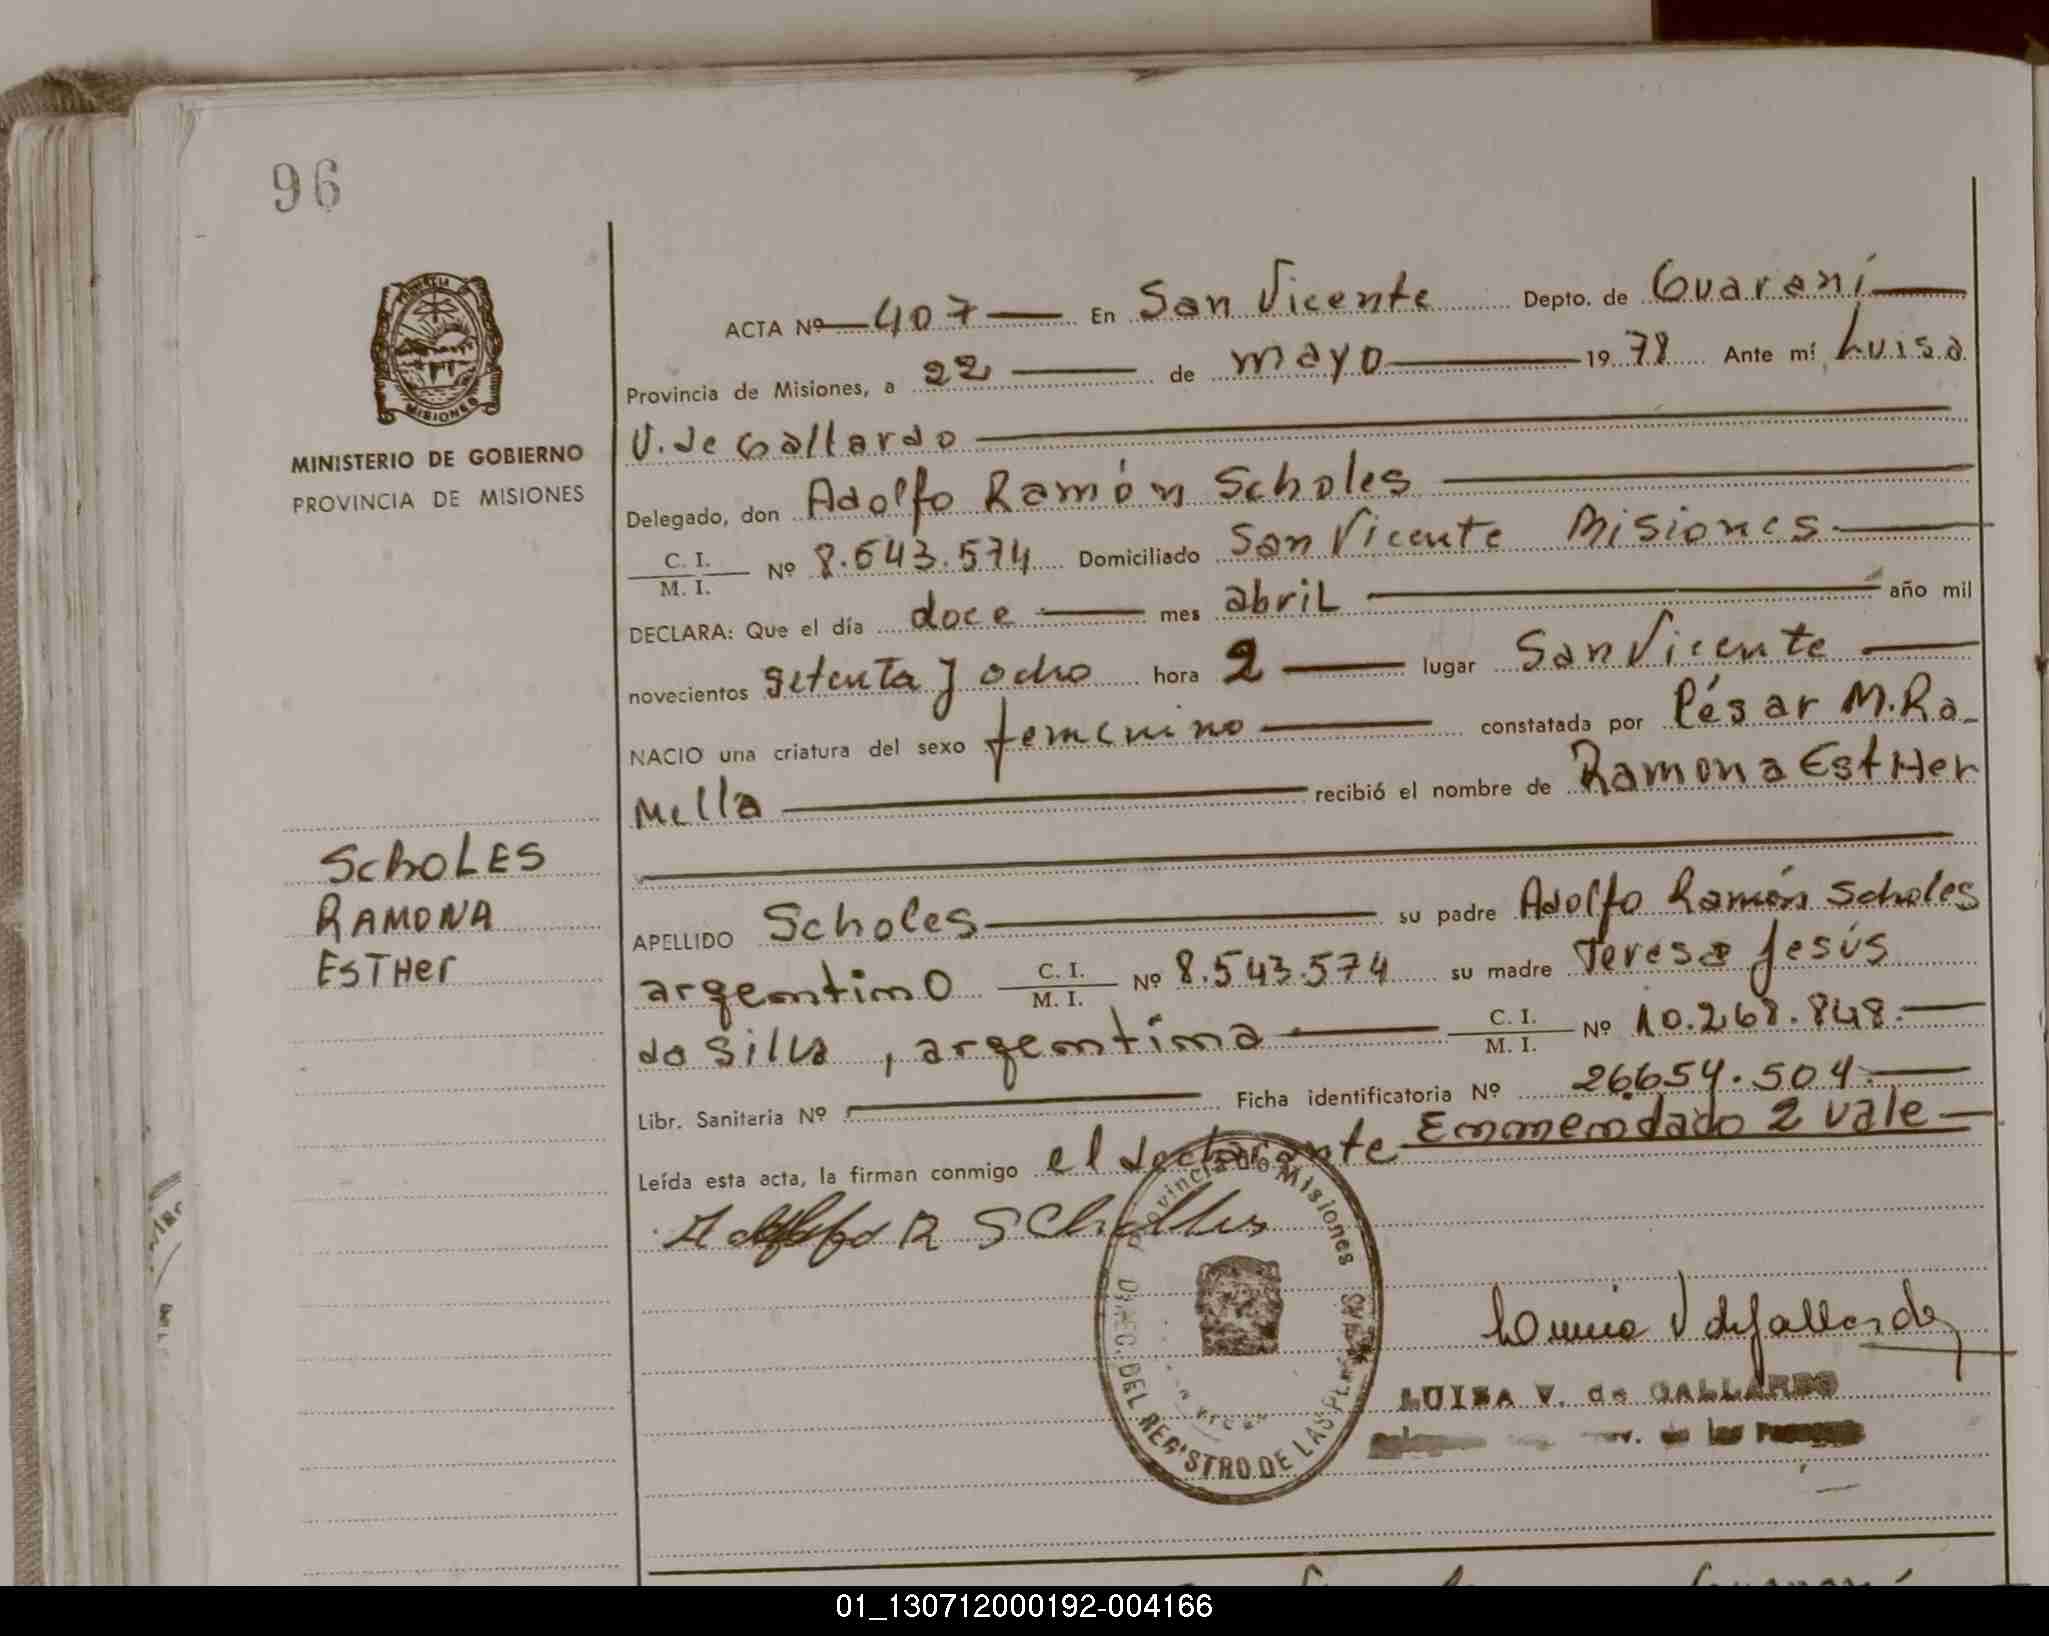 96
PROVINCIA DE
MISIONES
MINISTERIO DE GOBIERNO
PROVINCIA DE MISIONES
SCHOLES
RAMONA
ESTHer
ACTA Nº 407 En San Vicente Depto. de Guaraní
Provincia de Misiones, a 22 de mayo 1978 Ante mí Luisa
V. de Gallardo
Delegado, don Adolfo Ramón Scholes
C. I.
M. I. Nº 8.543.574 Domiciliado San Vicente Misiones
DECLARA: Que el día doce mes abril año mil
novecientos setenta y ocho hora 2 lugar San Vicente
NACIO una criatura del sexo femenino constatada por César M. Ra-
Mella recibió el nombre de Ramona EstHer
APELLIDO Scholes su padre Adolfo Ramón Scholes
argentino C. I.
M. I. Nº 8.543.574 su madre Teresa Jesús
da Silva, argentina C. I.
M. I. Nº 10.268.848.
Libr. Sanitaria Nº Ficha identificatoria Nº 26654.504.
Leída esta acta, la firman conmigo el declarante Enmendado 2 vale
Adolfo R Scholles
Provincia de Misiones
DIREC. DEL REGISTRO DE LAS
Luisa V de Gallardo
LUISA V. de GALLARDO
de las
01_130712000192-004166